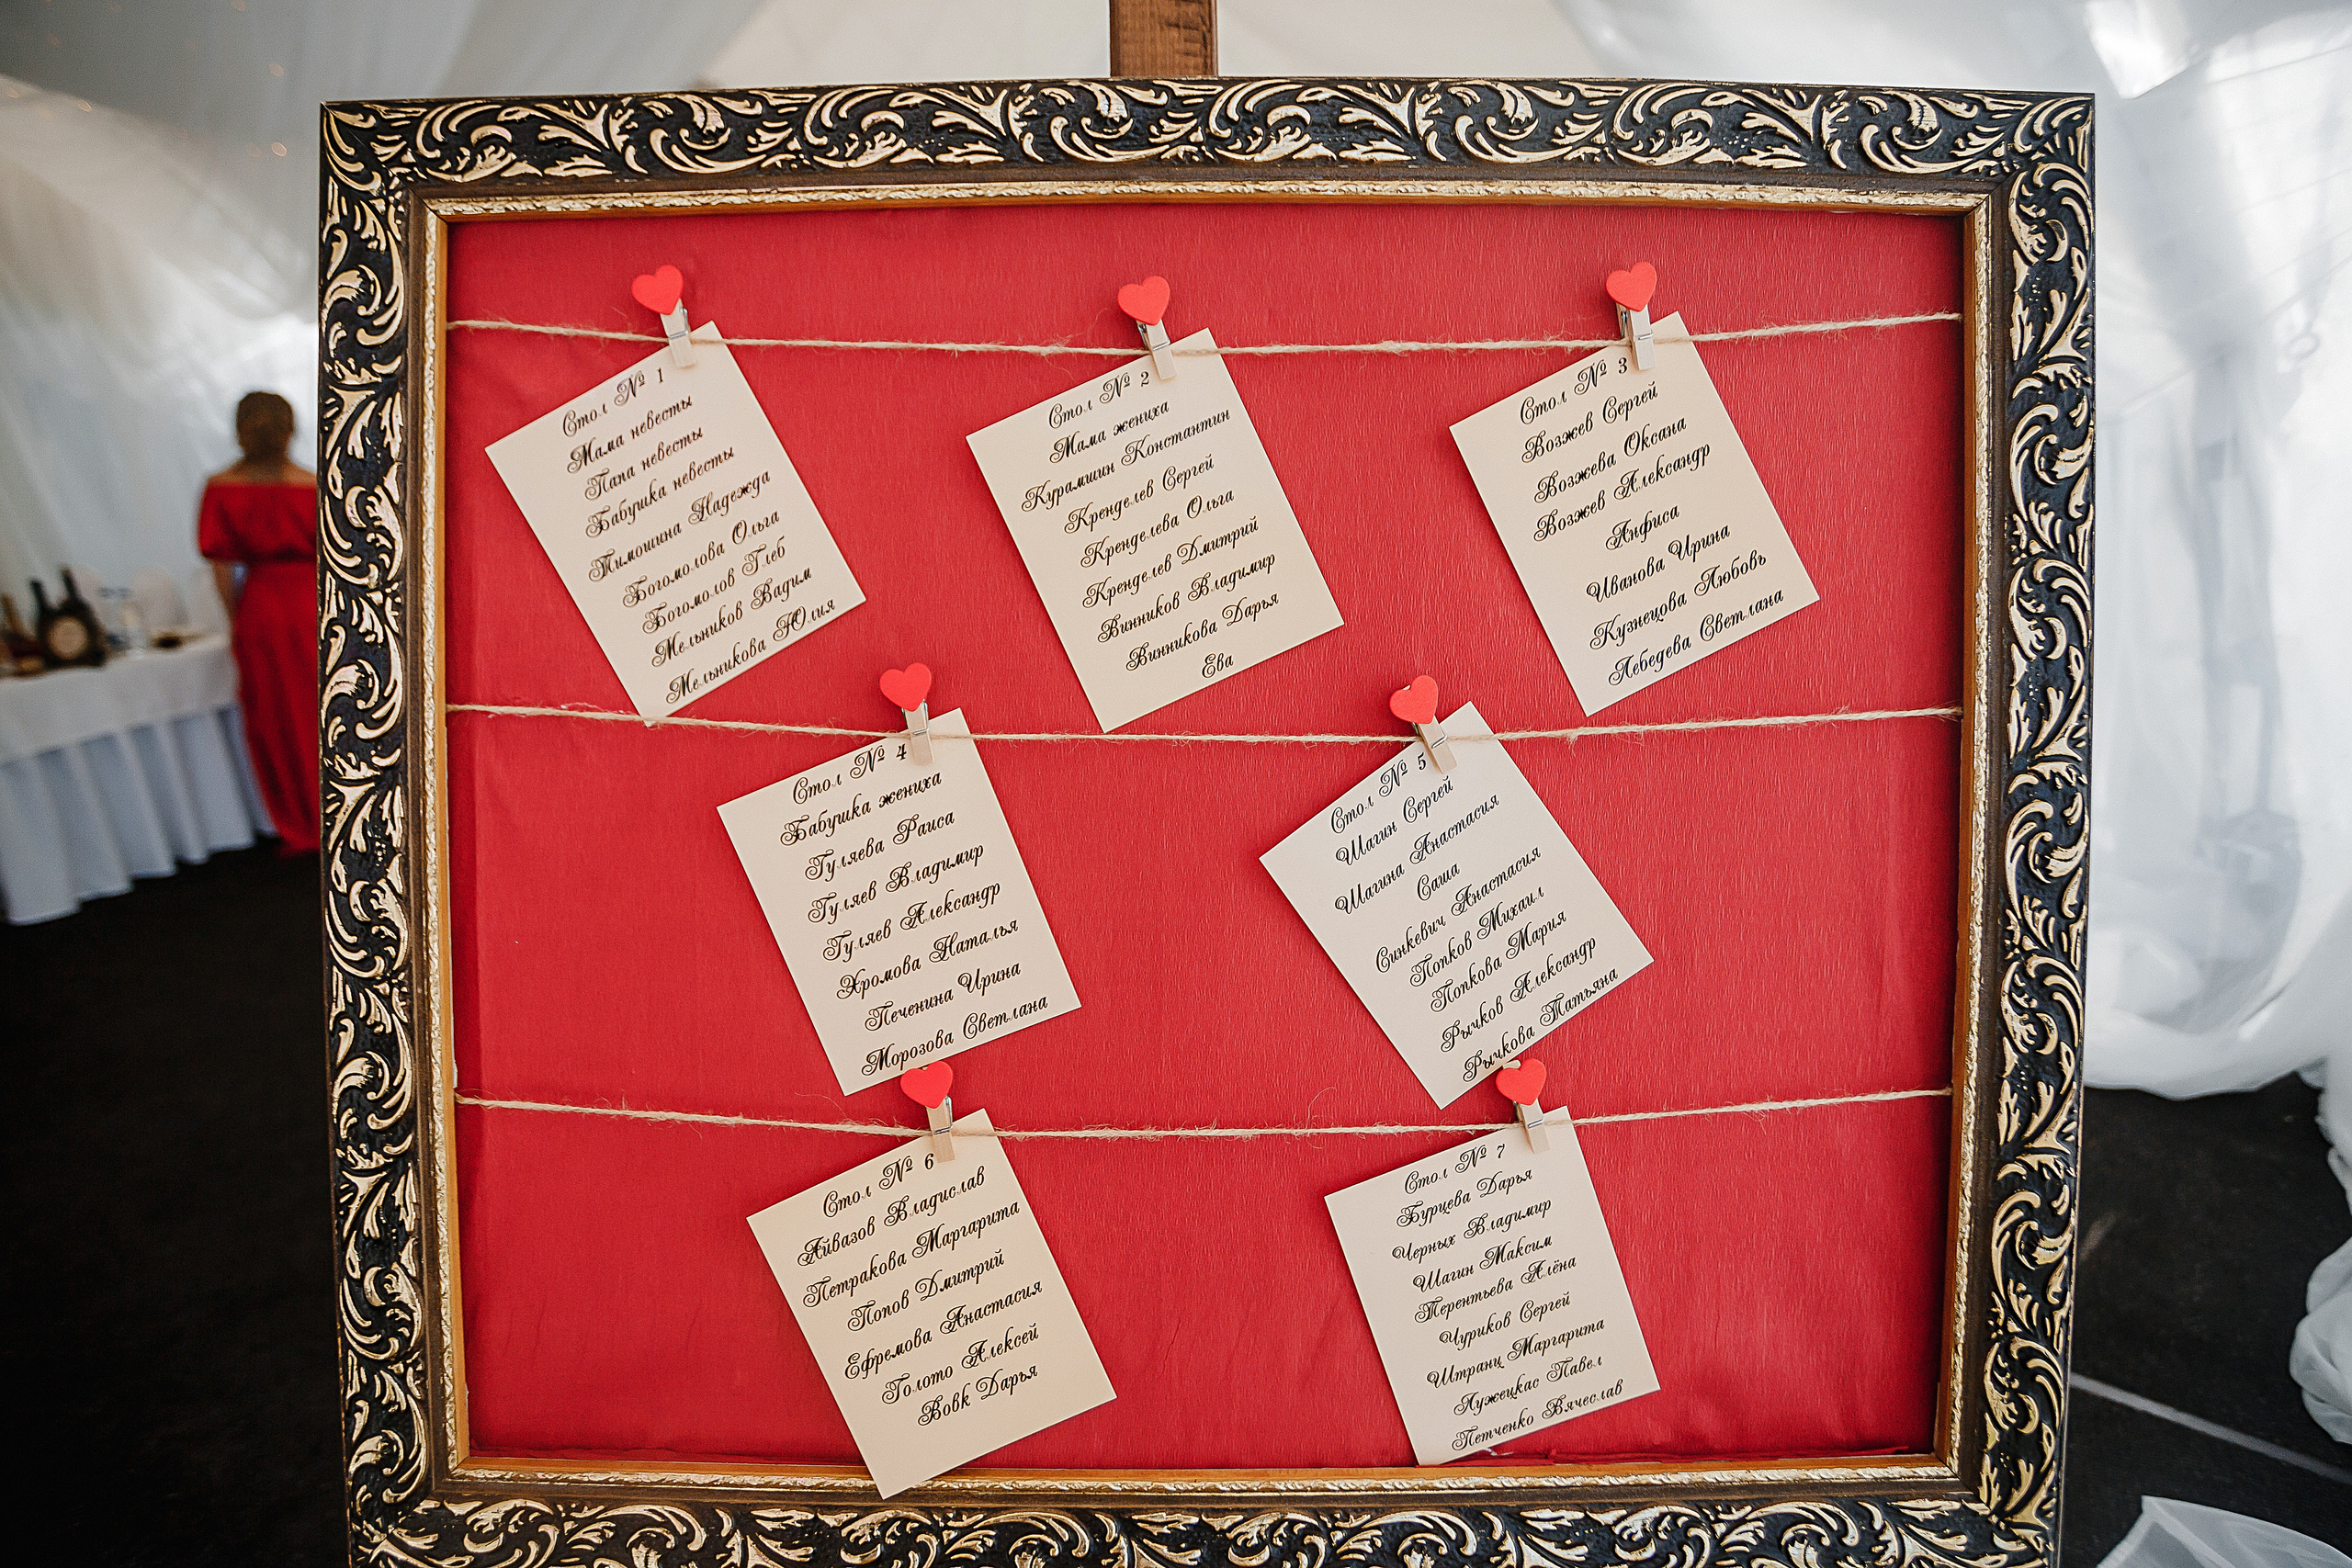 Стол № 1
Мама невесты
Папа невесты
Бабушка невесты
Тимошина Надежда
Богомолова Ольга
Богомолов Глеб
Мельников Вадим
Мельникова Юлия
Стол № 2
Мама жениха
Курамшин Константин
Кренделев Сергей
Кренделева Ольга
Кренделев Дмитрий
Винников Владимир
Винникова Дарья
Ева
Стол № 3
Возжев Сергей
Возжева Оксана
Возжев Александр
Анфиса
Иванова Ирина
Кузнецова Любовь
Лебедева Светлана
Стол № 4
Бабушка жениха
Гуляева Раиса
Гуляев Владимир
Гуляев Александр
Хромова Наталья
Печенина Ирина
Морозова Светлана
Стол № 5
Шагин Сергей
Шагина Анастасия
Саша
Синкевич Анастасия
Попков Михаил
Попкова Мария
Рычков Александр
Рычкова Татьяна
Стол № 6
Айвазов Владислав
Петракова Маргарита
Попов Дмитрий
Ефремова Анастасия
Голото Алексей
Вовк Дарья
Стол № 7
Бурцева Дарья
Черных Владимир
Шагин Максим
Терентьева Алёна
Чуриков Сергей
Штранц Маргарита
Лужецкас Павел
Петченко Вячеслав